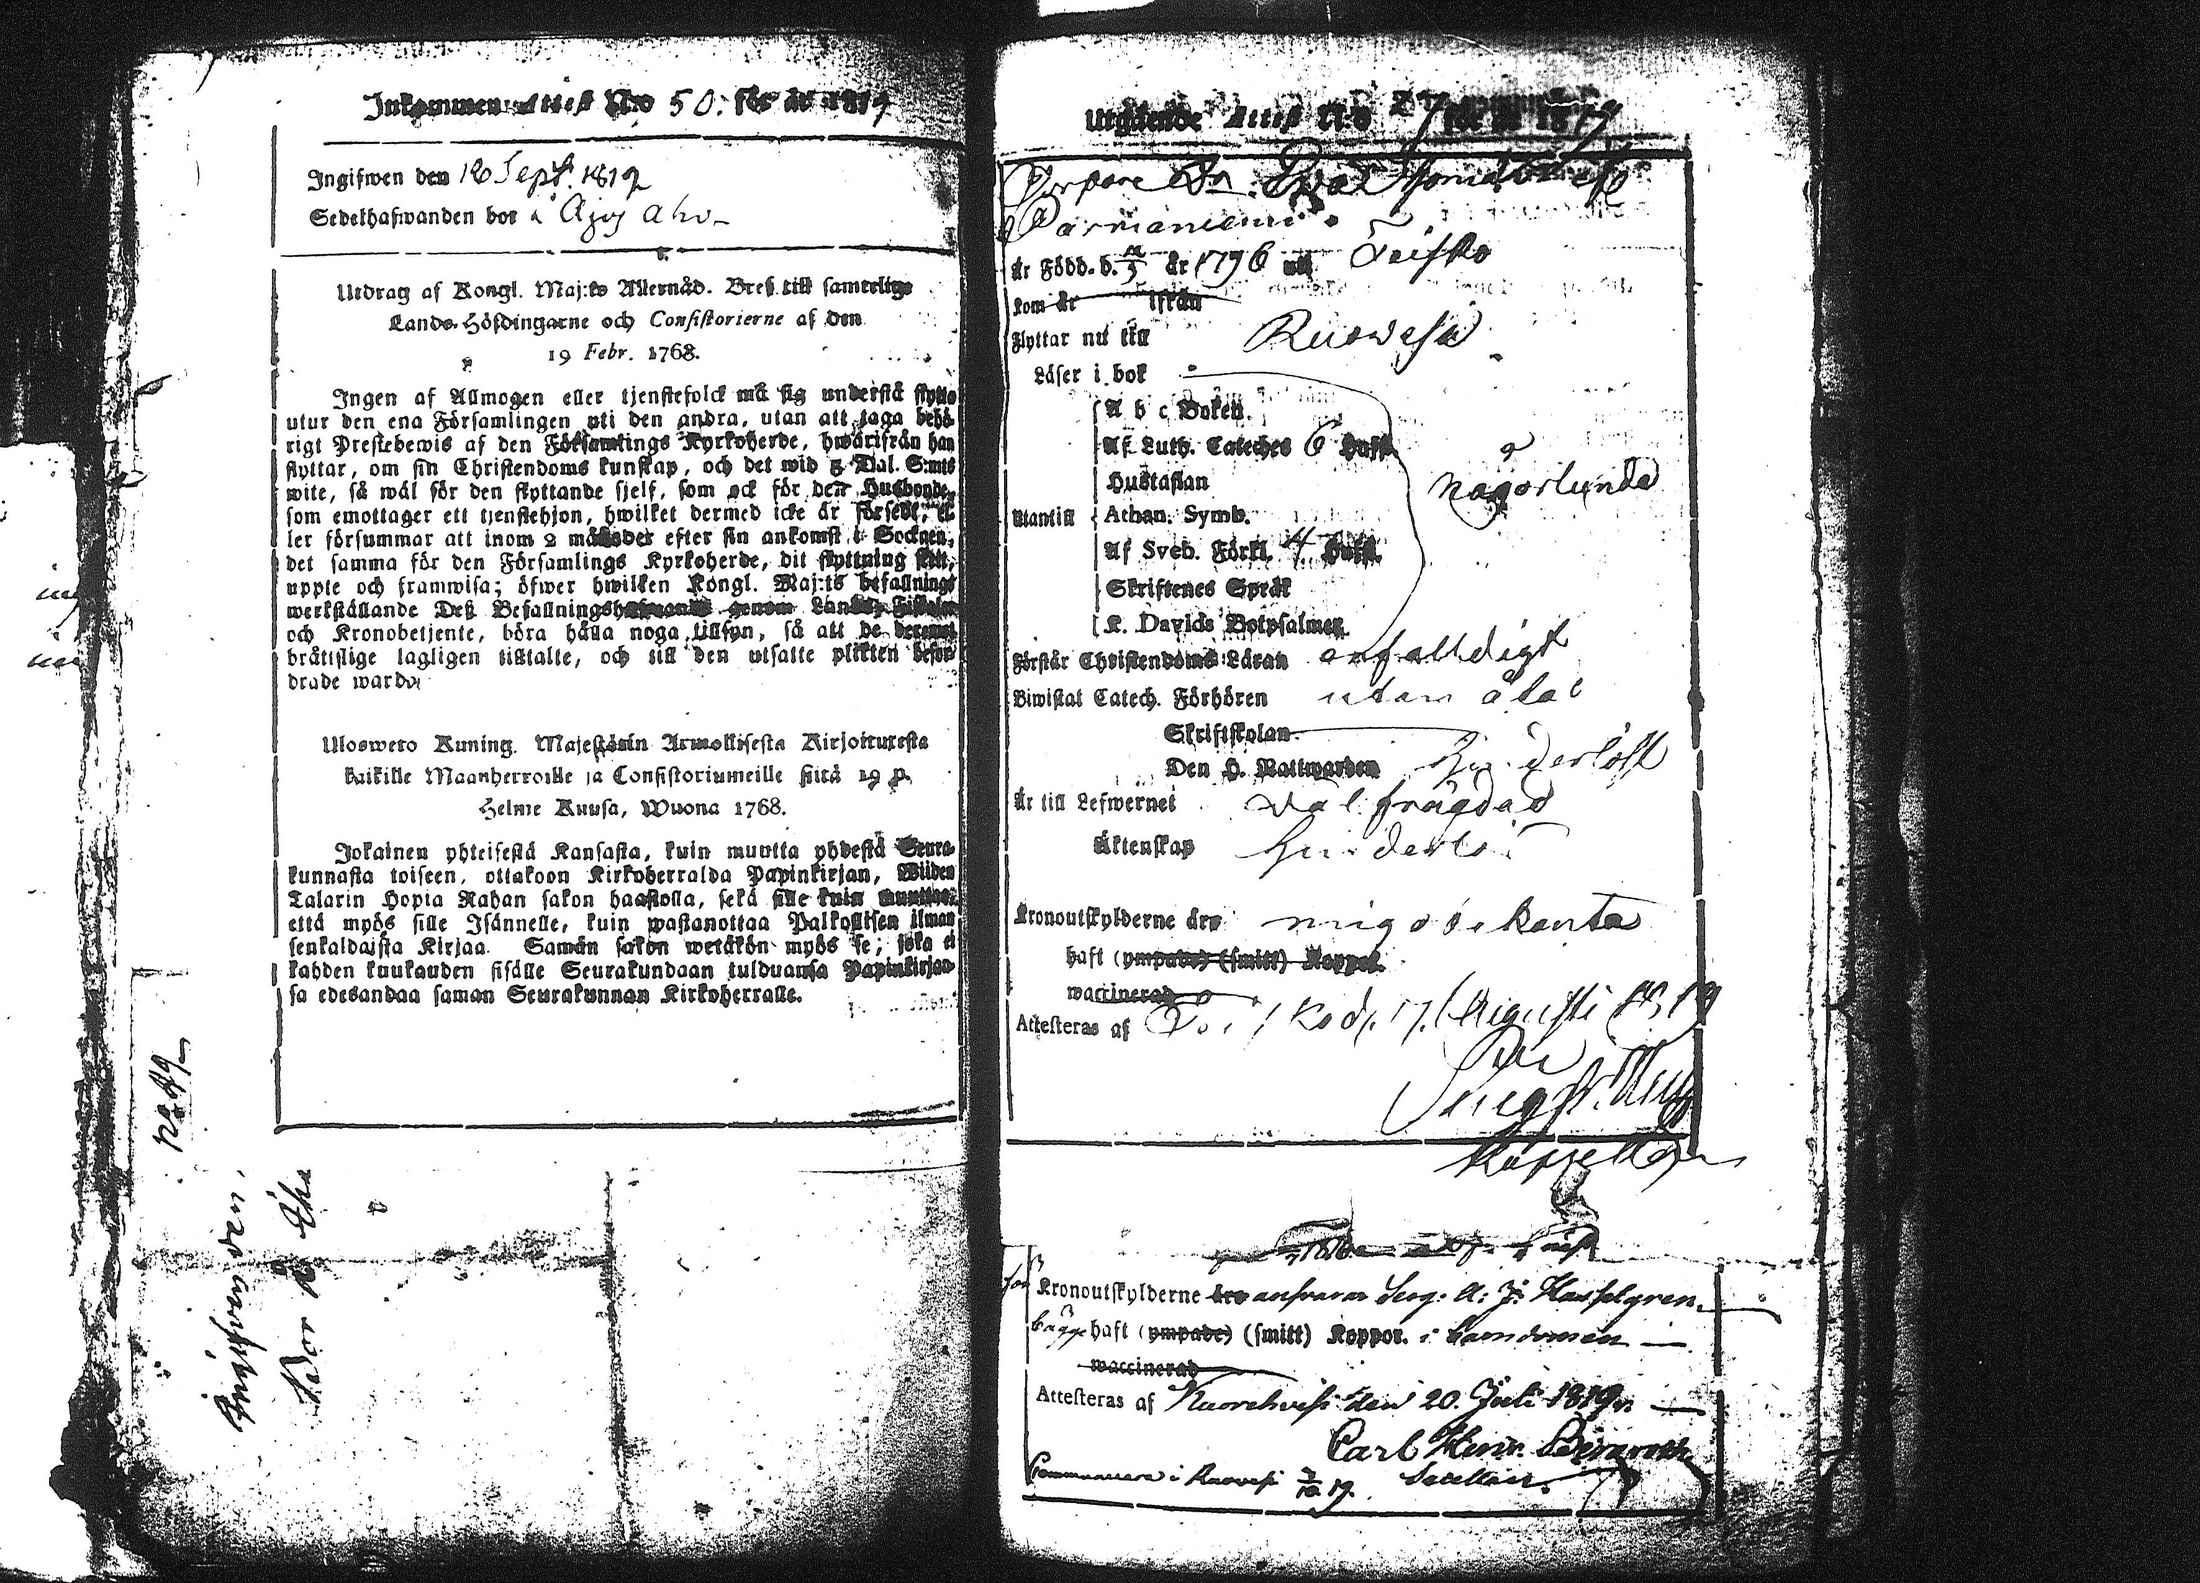 Inkommen Attest N:o 50. för år 1819
Ingifwen den 12 Sept. 1819
Sedelhafwanden bor å Ajos aho
Utdrag af Kongl. Maj:ts Allernåd. Bref till samtelige
Lands-Höfdingarne och Consistorierne af den
19 Febr. 1768.
Ingen af Allmogen eller tjenstefolck må sig understå flytta
utur den ena Församlingen uti den andra, utan att taga behö-
rigt Prestebewis af den Församlings Kyrkoherde, hwarifrån han
flyttar, om sin Christendoms kunskap, och det wid 5 Dal. S:mts
wite, så wäl för den flyttande sjelf, som ock för den Husbonde,
som emottager ett tjenstehjon, hwilket dermed icke är försedt, el-
ler försummar att inom 2 månader efter sin ankomst i Socknen,
det samma för den Församlings Kyrkoherde, dit flyttning skett,
uppte och framwisa; öfwer hwilken Kongl. Maj:ts befallnings
werkställande Deß Befallningshafwande genom Lands-Fiskaler
och Kronobetjente, böra hålla noga tillsyn, så att de deremot
bråtslige lagligen tilltalte, och till den utsatte plikten befor-
drade warda.
Uloswero Kuning. Majestärin Armollisesta Kirjoituxesta
kaikille Maanherroille ja Consistoriumeille siitä 19 p.
Helme Kuusa, Wuona 1768.
Jokainen yhteisestä Kansasta, kuin muutta yhdestä Seura-
kunnasta toiseen, ottakoon Kirkoherralda Papinkirjan, Wiiden
Talarin Hopia Rahan sakon haastolla, sekä sille kuin muuttaa:
että myös sille Isännelle, kuin wastanottaa Palkollisen ilman
senkaldaista Kirjaa. Samän sakon wetäkön myös se, joka ei
kahden kuukauden sisälle Seurakundaan tulduansa Papinkirjaan-
sa edesandaa saman Seurakunnan Kirkoherralle.
No 49
bor å Aho
Utgående Attest N:o 27 för år 1819
Är Född. d. år 1796 uti Teisko
kom år ifrån
Flyttar nu till Ruowesi
Läser i bok
A b c Boken.
Af Luth. Cateches 6 Huft.
Hustaflan
någorlunda
Utantill
Athan. Symb.
Af Sveb. Förkl. 4 Huft.
Skriftenes Språk
K. Davids Botpsalmer
Förstår Christendoms-Läran enfalldigt
Biwistat Catech. Förhören utan åtal
Skriftskolan
Den H. Nattwarden hinderlöst
Är till Lefwernet väl frägdad
Äktenskap hinderlös
Kronoutskylderne äro mig obekanta
haft (ympade) (smitt) Koppor.
waccinerad
Attesteras af Teisko d. 17. Augusti 1819
Kronoutskylderne äro ansvarar Serg: A: J: Hasselgren.
bägge haft (ympade) (smitt) Koppor. i barndomen
waccinerad
Attesteras af Kuorehvesi den 20. Juli 1819.
Carl Henr. Bergroth
Sacellan.
Communicera i Ruovesi 3/10 19.